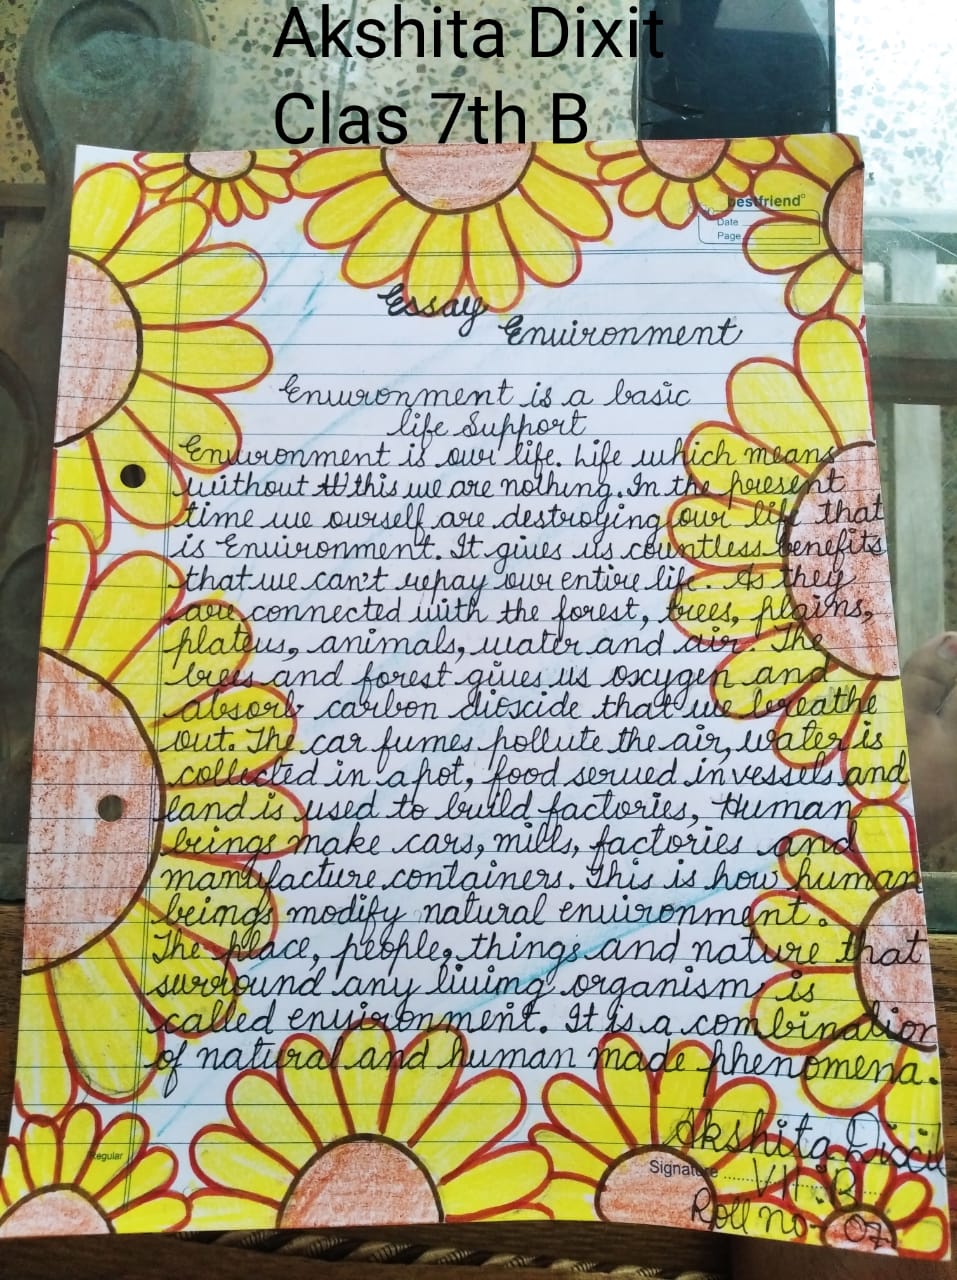 Akshita Dixit
Clas 7th B
bestfriend
Date
Page
Essay
Environment
Environment is a basic
life Support
Environment is our life. Life which means
without this we are nothing. In the present
time we ourself are destroying our life that
is Environment. It gives us countless benefits
that we can't repay our entire life. As they
are connected with the forest, trees, plains,
plateus, animals, water and air. The
trees and forest gives us oxygen and
absorb carbon dioxide that we breathe
out. The car fumes pollute the air, water is
collected in a pot, food served in vessels and
land is used to build factories, Human
beings make cars, mills, factories and
manufacture containers. This is how human
beings modify natural environment.
The place, people, things and nature that
surround any living organism is
called environment. It is a combination
of natural and human made phenomena.
Akshita Dixit
Regular
Signature
VII B
Roll no - 07